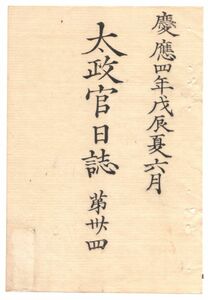 慶應四年戊辰夏六月
太政官日誌 第卅四